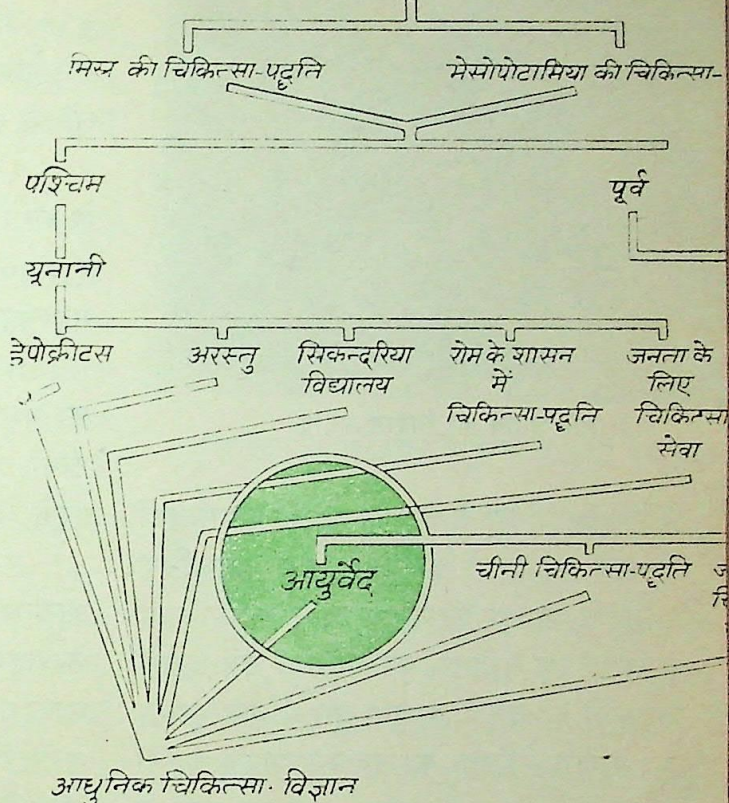 मिस्र की चिकित्सा-पद्धति
मेसोपोटामिया की चिकित्सा-
पश्चिम
पूर्व
यूनानी
हेपोक्रीटस
अरस्तु
सिकन्दरिया
विद्यालय
रोम के शासन
में
चिकित्सा-पद्धति
जनता के
लिए
चिकित्सा
सेवा
आयुर्वेद
चीनी चिकित्सा-पद्धति
आधुनिक चिकित्सा-विज्ञान